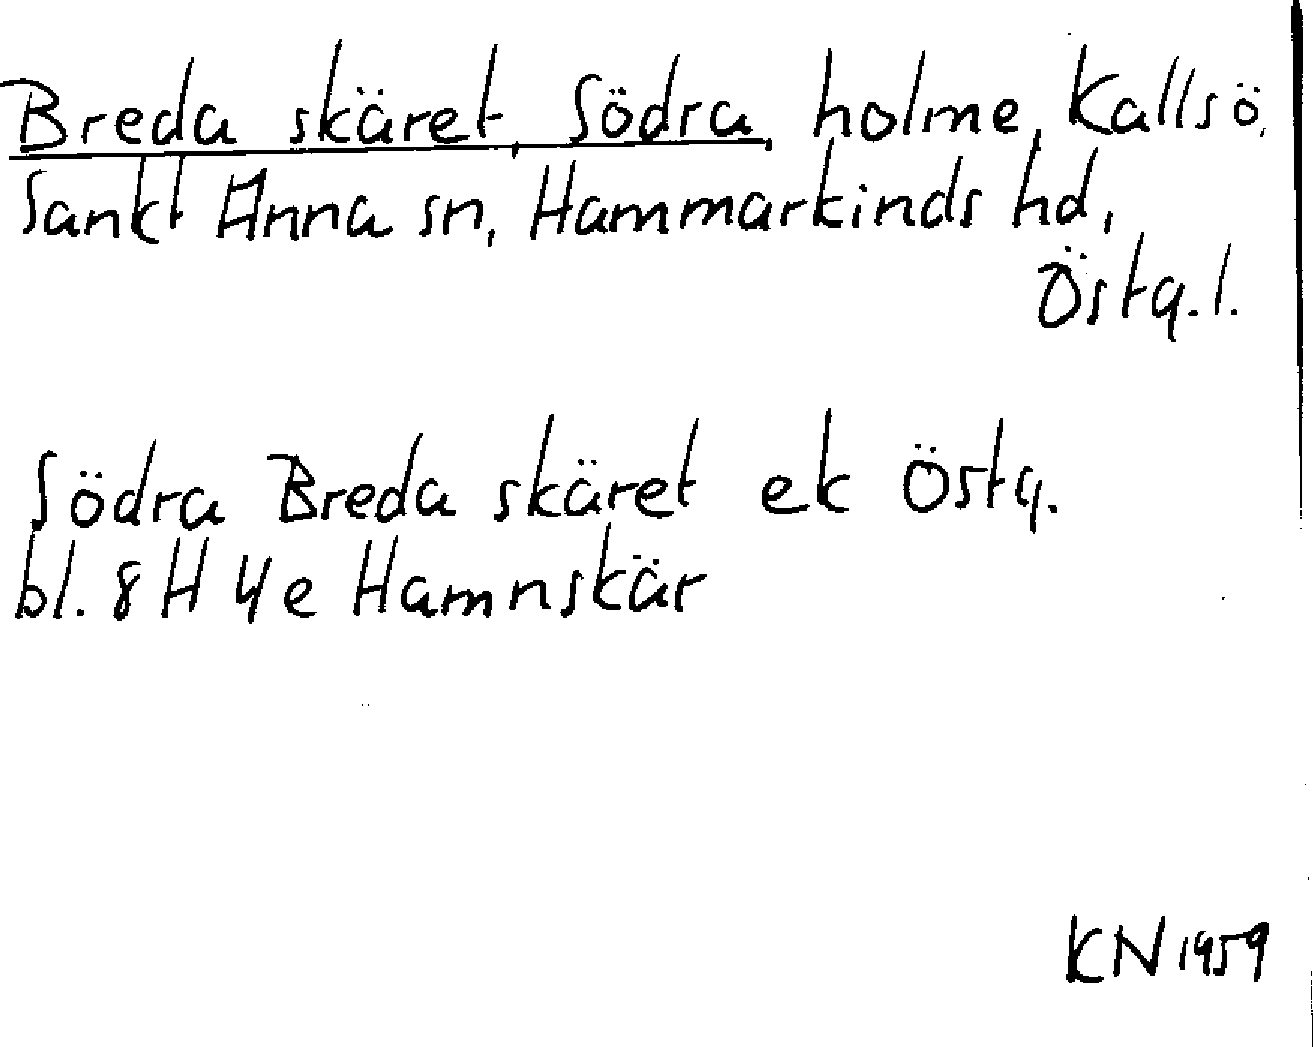 Breda skäret, Södra, holme, Kallsö,
Sankt Anna sn, Hammarkinds hd,
Östg. l.
Södra Breda skäret ek Östg.
bl. 8 H 4e Hamnskär
KN 1959